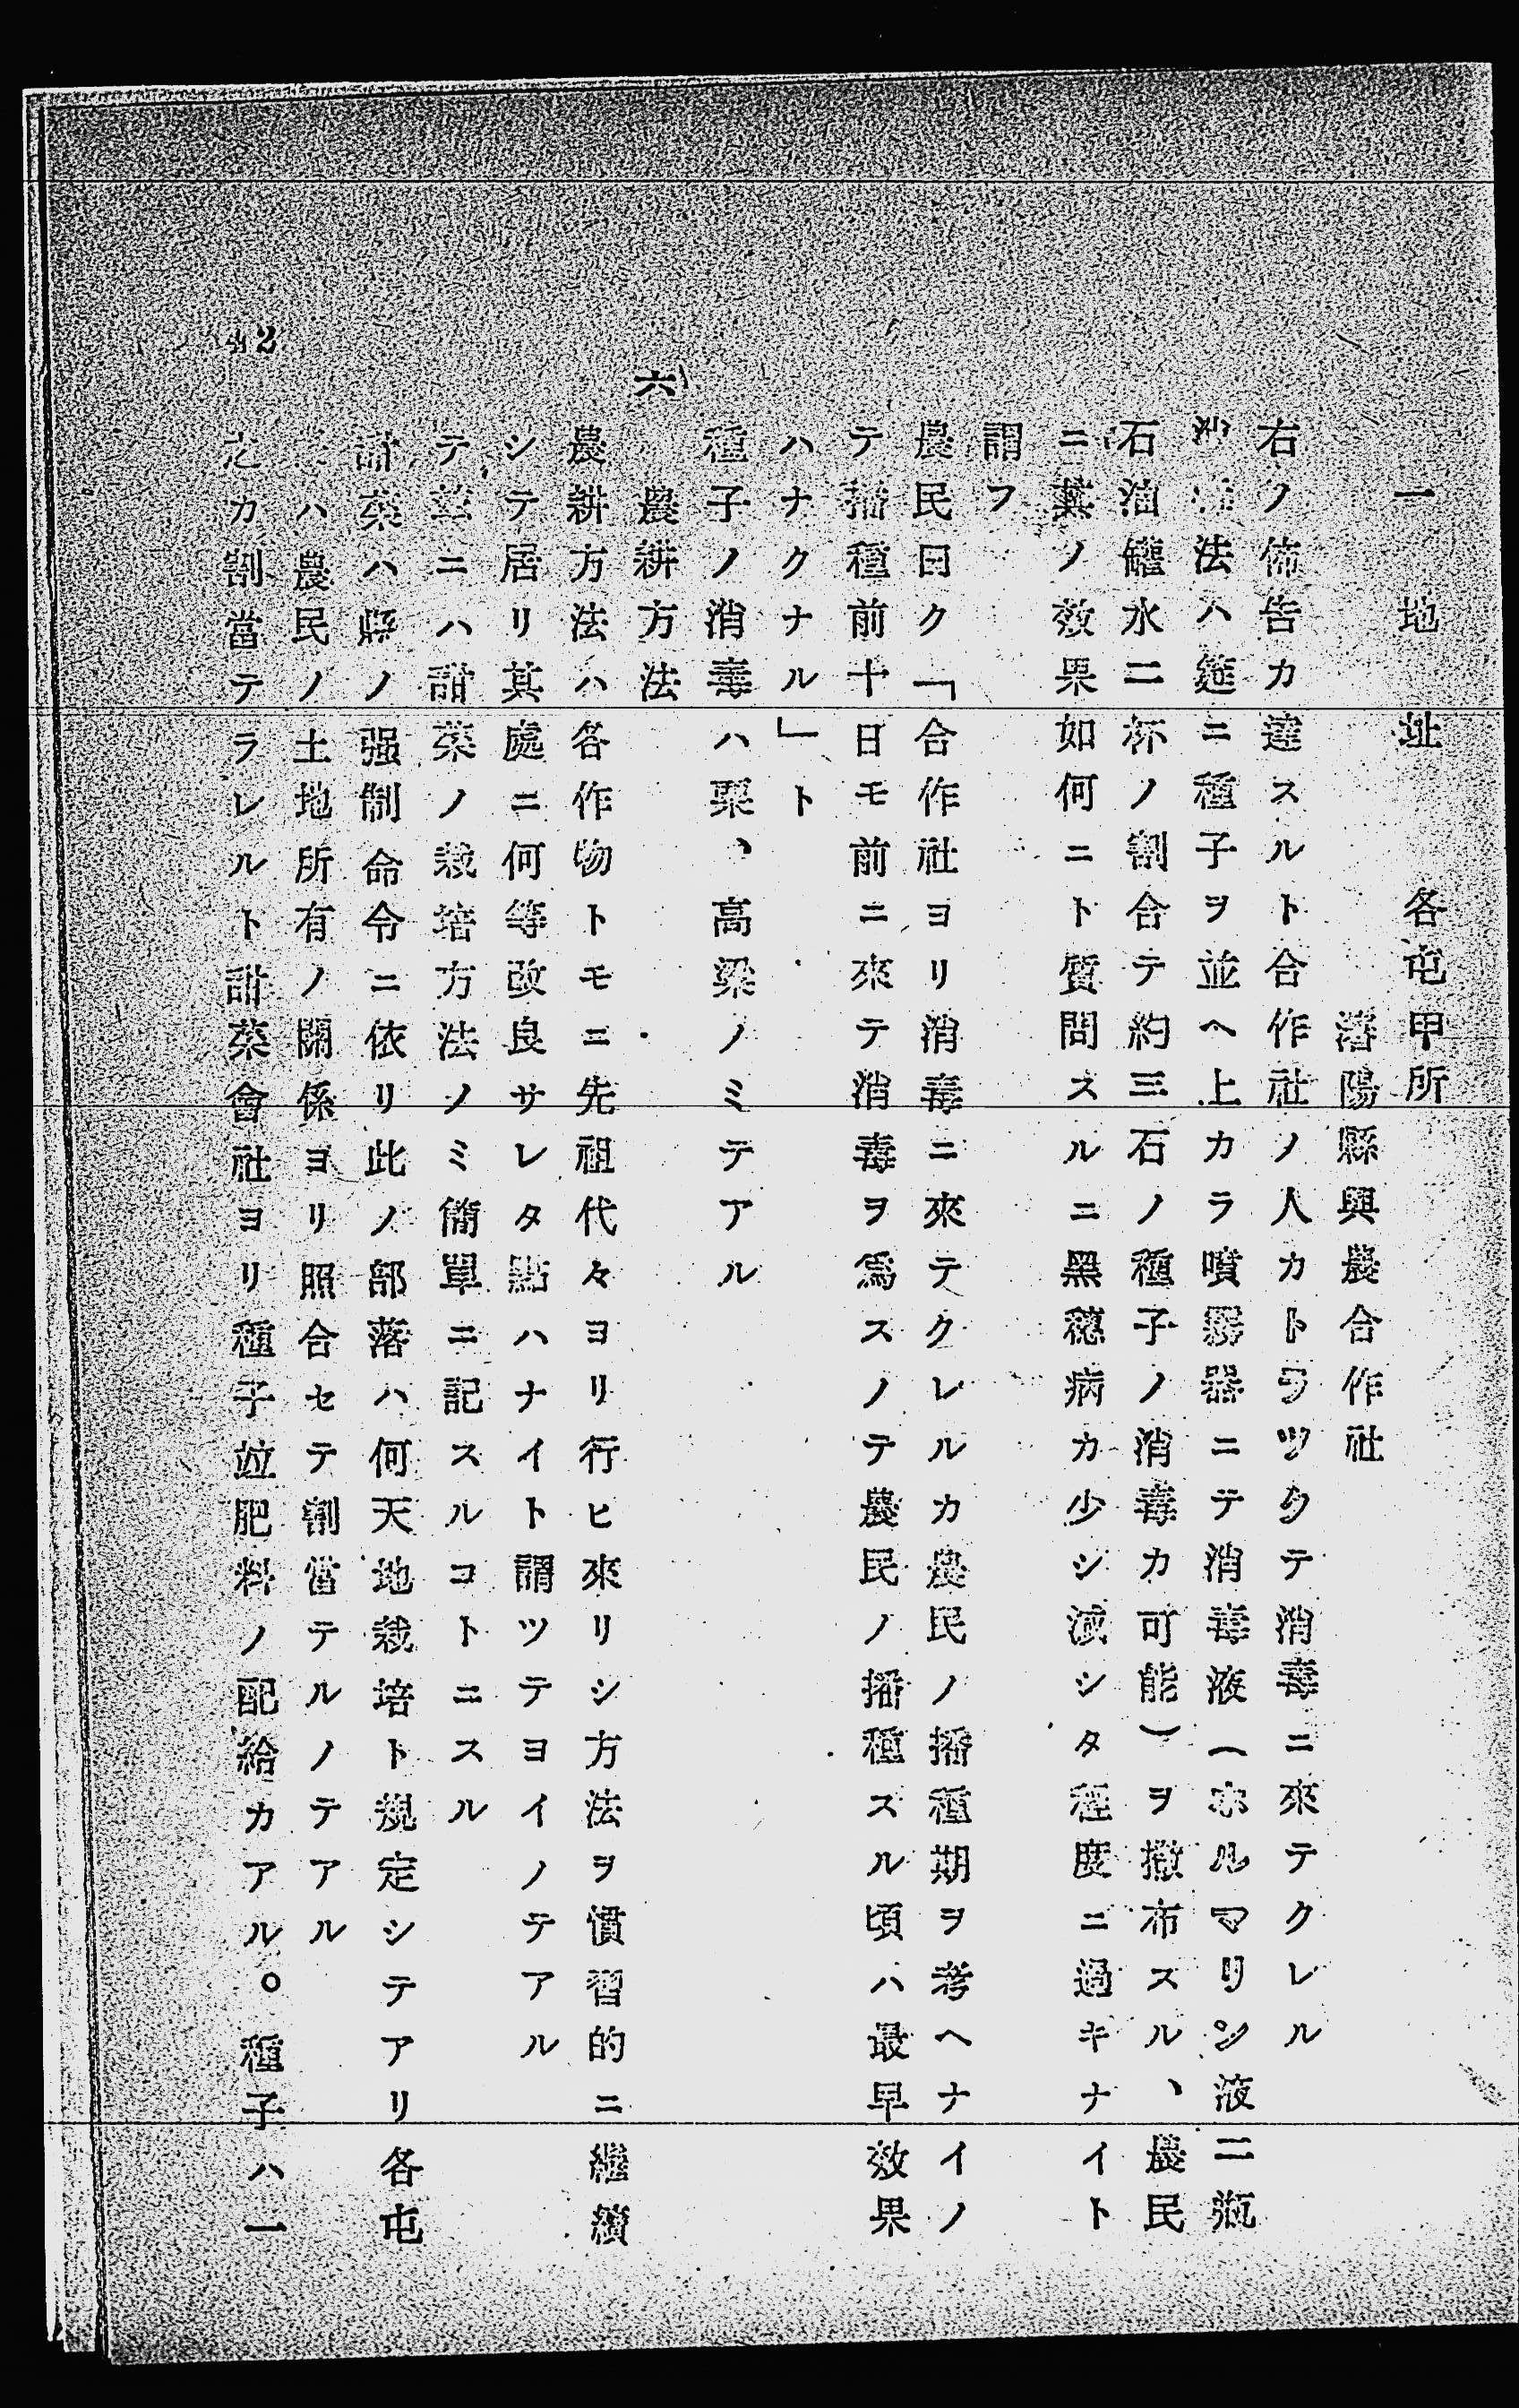 一地址　各屯甲所
瀋陽縣興農合作社
右ノ佈告カ達スルト合作社ノ人カトラツクテ消毒ニ來テクレル
法ハ筵ニ種子ヲ並ヘ上カラ噴霧器ニテ消毒液（ホルマリン液二瓶
石油罐水二杯ノ割合テ約三石ノ種子ノ消毒カ可能）ヲ撒布スル、農民
ニ其ノ效果如何ニト質問スルニ黑穗病カ少シ減シタ程度ニ過キナイト
謂フ
農民曰ク「合作社ヨリ消毒ニ來テクレルカ農民ノ播種期ヲ考ヘナイノ
テ播種前十日モ前ニ來テ消毒ヲ爲スノテ農民ノ播種スル頃ハ最早效果
ハナクナル」ト
種子ノ消毒ハ粟、高粱ノミテアル
六）農耕方法
農耕方法ハ各作物トモニ先祖代々ヨリ行ヒ來リシ方法ヲ慣習的ニ繼續
シテ居リ其處ニ何等改良サレタ點ハナイト謂ツテヨイノテアル
テ茲ニハ甜菜ノ栽培方法ノミ簡單ニ記スルコトニスル
甜菜ハ縣ノ强制命令ニ依リ此ノ部落ハ何天地栽培ト規定シテアリ各屯
ハ農民ノ土地所有ノ關係ヨリ照合セテ割當テルノテアル
之カ割當テラレルト甜菜會社ヨリ種子竝肥料ノ配給カアル。種子ハ一
42